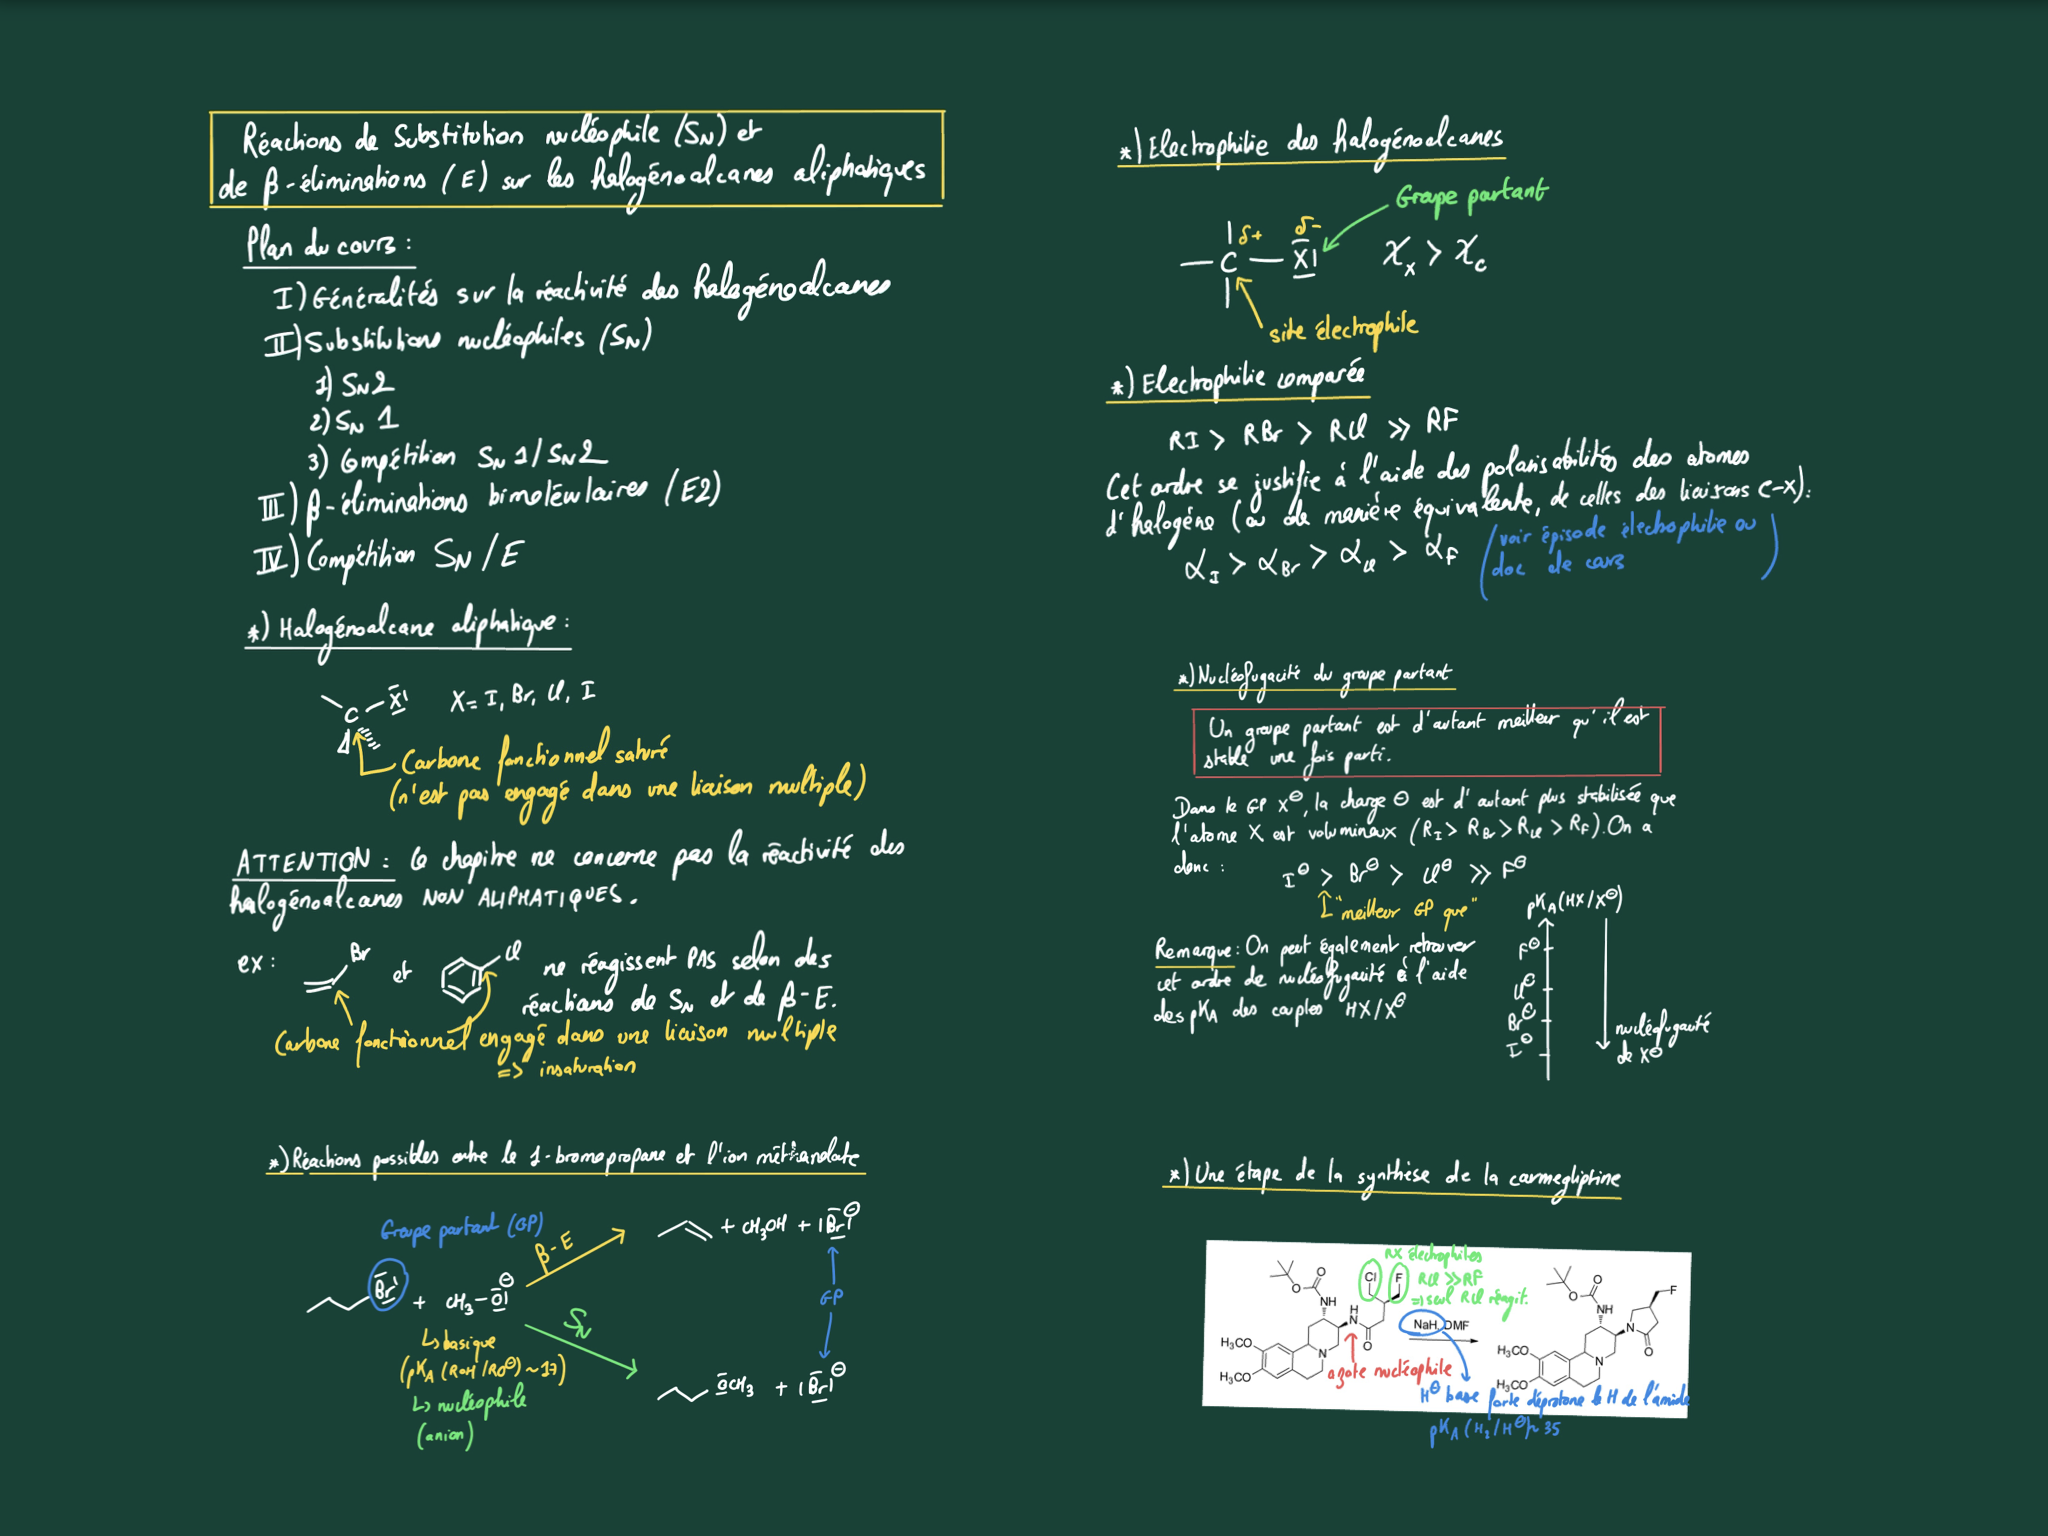 Réactions de Substitution nucléophile (SN) et
de β-éliminations (E) sur les halogénoalcanes aliphatiques
Plan du cours :
I) Généralités sur la réactivité des halogénoalcanes
II) Substitutions nucléophiles (SN)
1) SN2
2) SN 1
3) Compétition SN1/SN2
III) β-éliminations bimoléculaires (E2)
IV) Compétition SN/E
*) Halogénoalcane aliphatique :
C X X= I, Br, Cl, I
Carbone fonctionnel saturé
(n'est pas engagé dans une liaison multiple)
ATTENTION : Ce chapitre ne concerne pas la réactivité des
halogénoalcanes NON ALIPHATIQUES.
ex : Br et Cl ne réagissent PAS selon des
réactions de SN et de β-E.
Carbone fonctionnel engagé dans une liaison multiple
=> insaturation
*) Réactions possibles entre le 1-bromopropane et l'ion méthanolate
Groupe partant (GP)
β-E
+ CH3OH + |Br|⊖
Br + CH3-O|⊖
GP
SN
↳ basique
(pKA (ROH/RO⊖) ~ 17)
↳ nucléophile
(anion)
OCH3 + |Br|⊖
*) Electrophilie des halogénoalcanes
Groupe partant
δ+ δ-
— C — X| χx > χc
site électrophile
*) Electrophilie comparée
RI > RBr > RCl >> RF
Cet ordre se justifie à l'aide des polarisabilités des atomes
d'halogène (ou de manière équivalente, de celles des liaisons C-X):
αI > αBr > αCl > αF
(voir épisode électrophilie ou
doc de cours)
*) Nucléofugacité du groupe partant
Un groupe partant est d'autant meilleur qu'il est
stable une fois parti.
Dans le GP X⊖, la charge ⊖ est d'autant plus stabilisée que
l'atome X est volumineux (RI > RBr > RCl > RF). On a
donc : I⊖ > Br⊖ > Cl⊖ >> F⊖
"meilleur GP que"
pKA(HX/X⊖)
Remarque : On peut également retrouver
cet ordre de nucléofugacité à l'aide
des pKA des couples HX/X⊖
F⊖
Cl⊖
Br⊖
I⊖
nucléofugacité
de X⊖
*) Une étape de la synthèse de la carmegliptine
RX électrophiles
RCl >> RF
=> seul RCl réagit.
Cl F
O
O NH
H
N
O
H3CO
H3CO
N
NaH, DMF
azote nucléophile
H⊖ base forte déprotone le H de l'amide
pKA (H2/H⊖) ~ 35
O
O NH
F
N
O
H3CO
H3CO
N